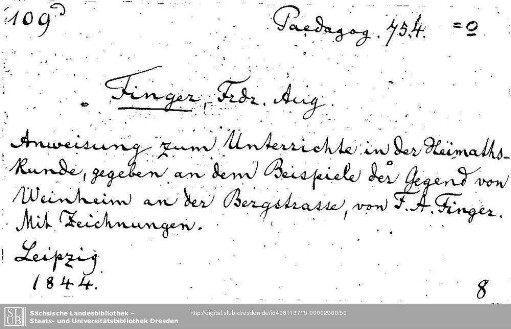 109d
Paedagog. 754. =o
Finger, Frdr. Aug
Anweisung zum Unterrichte in der Heimaths-
kunde, gegeben an dem Beispiele der Gegend von
Weinheim an der Bergstrasse, von F. A. Finger.
Mit Zeichnungen.
Leipzig
1844.
8
SLUB
Sächsische Landesbibliothek –
Staats- und Universitätsbibliothek Dresden